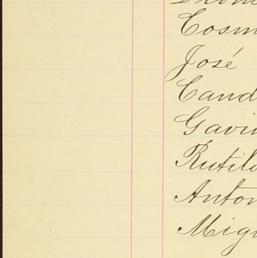 Cosm
José
Cand
Gavi
Rutil
Anton
Migu